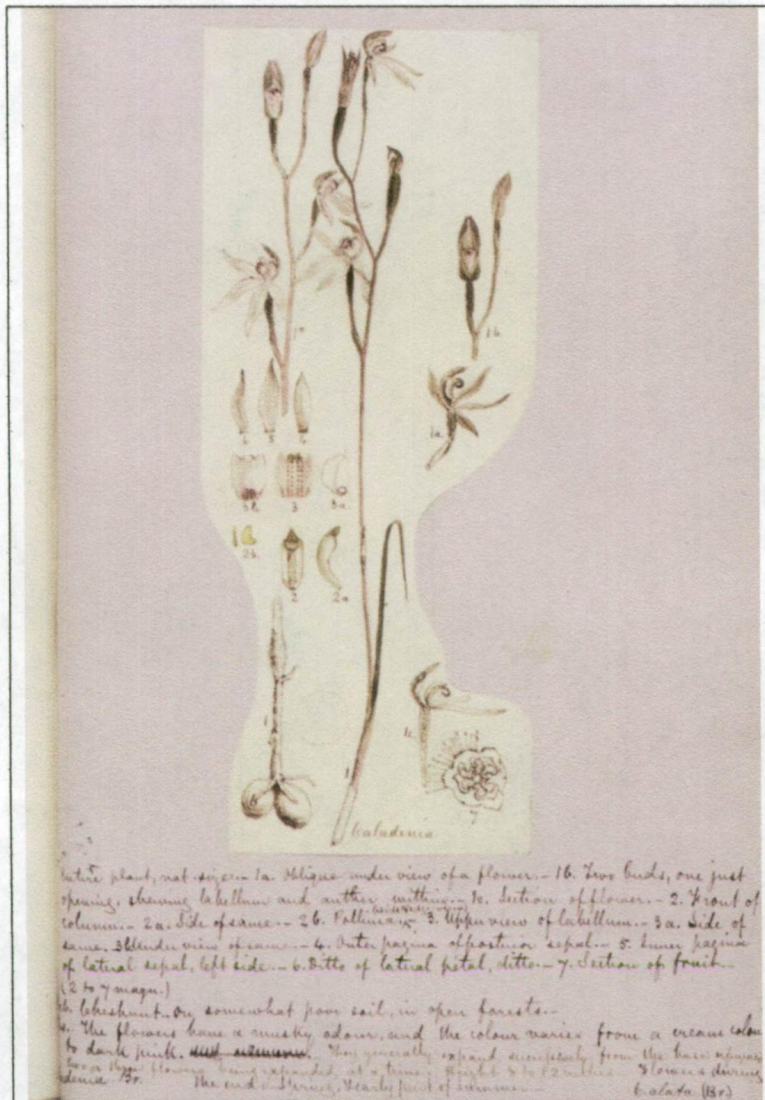 1b.
1a.
4. 5. 4.
3b. 3 3a.
2b. 2 2a
1c.
7
6
Caladenia
Entire plant, nat. size.— 1a. Oblique under view of a flower.— 1b. Two buds, one just
opening, shewing labellum and anther within.— 1c. Section of flower.— 2. Front of
column.— 2a. Side of same.— 2b. Pollinia.— 3. Upper view of labellum.— 3a. Side of
same. 3b Under view of same.— 4. Outer pagina of posterior sepal.— 5. Inner pagina
of lateral sepal, left side.— 6. Ditto of lateral petal, ditto.— 7. Section of fruit.—
(2 to 7 magn.)
Cheshunt. On somewhat poor soil, in open forests.—
The flowers have a musky odour, and the colour varies from a cream colour
to dark pink. They generally expand successively from the base upwards
two or three flowers being expanded at a time. Height 8 to 12 inches. Flowers during
Br. The end of Spring, & early part of summer.—
C. alata (Br.)